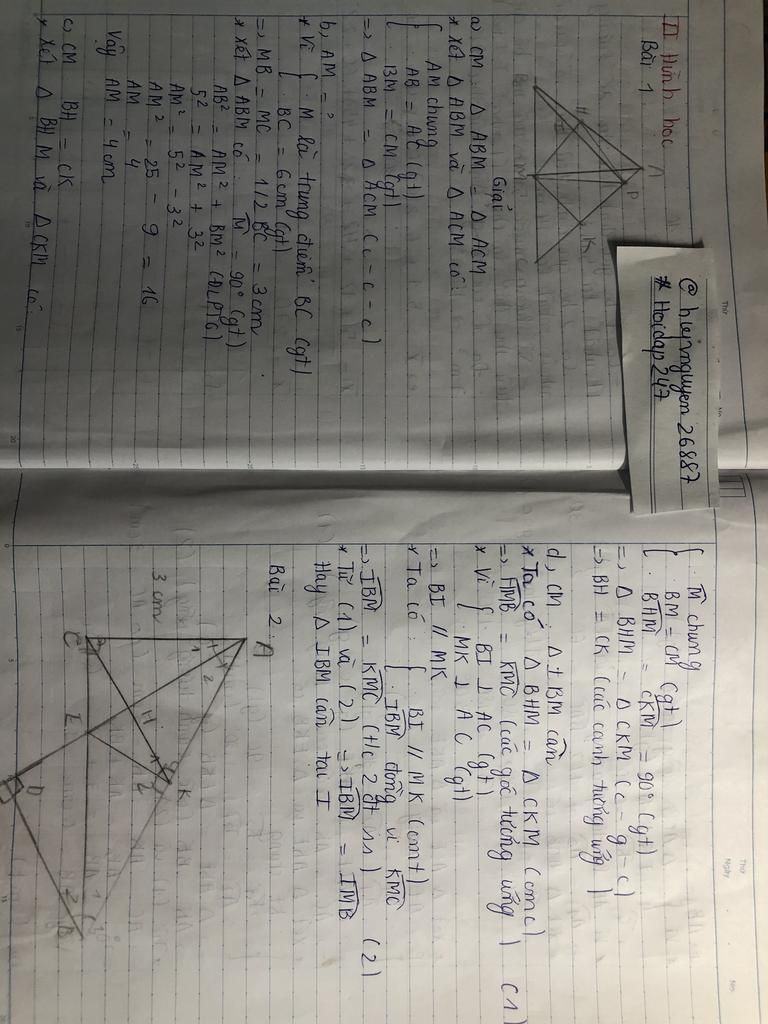 @hiepnguyen26887
# Hoidap247
II Hình học
Bài 1
A
P
H
I
K
B
M
Giải
a, CM: Δ ABM = Δ ACM
* Xét Δ ABM và Δ ACM có:
AM chung
AB = AC (gt)
BM = CM (gt)
=> Δ ABM = Δ ACM (c-c-c)
b, AM = ?
* Vì { . M là trung điểm BC (gt)
. BC = 6cm (gt)
=> MB = MC = 1/2 BC = 3cm.
* Xét Δ ABM có: M̂ = 90° (gt)
AB² = AM² + BM² (ĐLPTG)
5² = AM² + 3²
AM² = 5² - 3²
AM² = 25 - 9 = 16
AM = 4
Vậy AM = 4cm
c, CM BH = CK
* Xét Δ BHM và Δ CKM có:
. M̂ chung
. BM = CM (gt)
. BHM = CKM = 90° (gt)
=> Δ BHM = Δ CKM (c-g-c)
=> BH = CK (các cạnh tương ứng)
d, CM: Δ IBM cân
* Ta có Δ BHM = Δ CKM (cmc)
=> HMB = KMC (các góc tương ứng) (1)
* Vì { . BI ⊥ AC (gt)
. MK ⊥ AC (gt)
=> BI // MK
* Ta có: { BI // MK (cmt)
. IBM đồng vị KMC
=> IBM = KMC (t/c 2 đt ss) (2)
* Từ (1) và (2) => IBM = IMB
Hay Δ IBM cân tại I
Bài 2:
A
1
2
3 cm
C
H
K
E
D
B